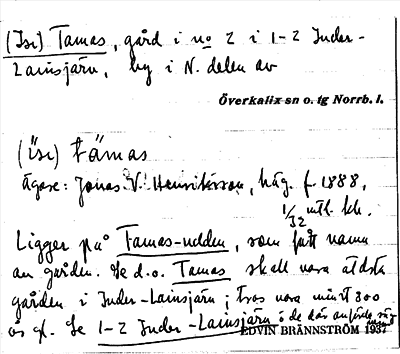 (Isr) Tamas, gård i no 2 i 1-2 Inder-
Lainsjärv, by i N. delen av
Överkalix sn o. tg Norrb. l.
(ĭsr) támas
Ägare: Jonas V. Henriksson, häg. f. 1888,
1/32 mtl. kr.
Ligger på Tamas-udden, som fått namn
av gården. Se d.o. Tamas skall vara äldsta
gården i Inder-Lainsjärv; tros vara minst 300
år gl. Se 1-2 Inder-Lainsjärv o de där anförda
EDVIN BRÄNNSTRÖM 1937